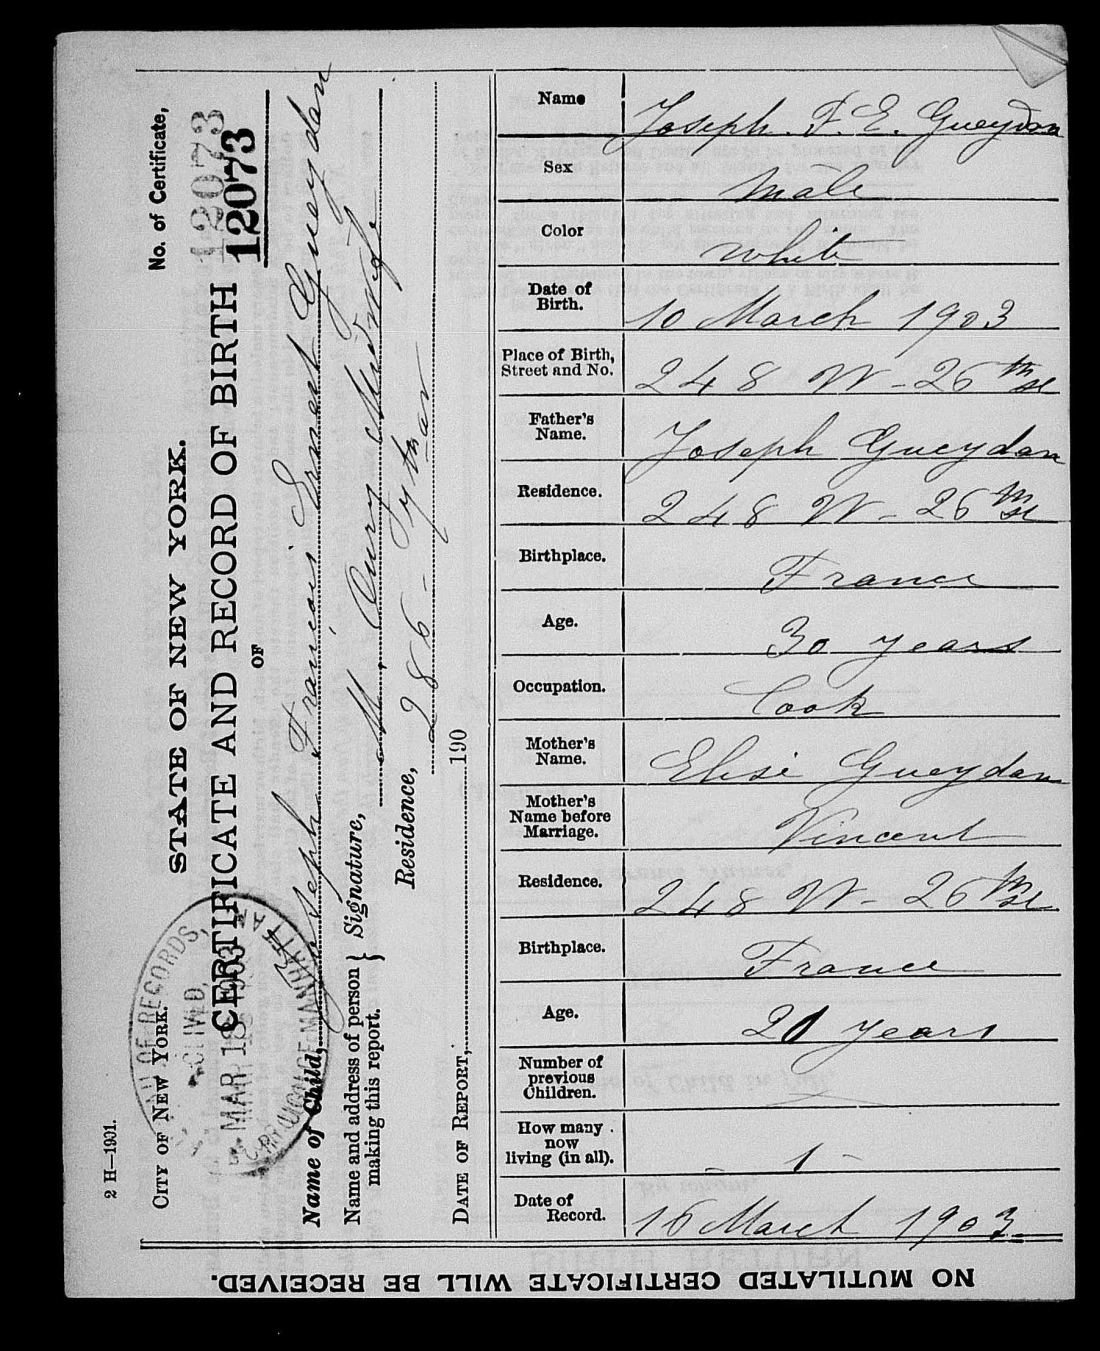 2 H—1901.
CITY OF NEW YORK.
STATE OF NEW YORK.
No. of Certificate,
12073
12073
CERTIFICATE AND RECORD OF BIRTH
OF
Name of Child, Joseph Francois Ernest Gueydan
Name and address of person making this report. } Signature, M. Midwife
Residence, 286 -
DATE OF REPORT, 190
RECORDS,
MAR 18 1903
MANHATTA
Name Joseph. F. E. Gueydan
Sex male
Color white
Date of Birth. 10 March 1903
Place of Birth, Street and No. 248 W - 26th st
Father's Name. Joseph Gueydan
Residence. 248 W - 26th st
Birthplace. France
Age. 30 years
Occupation. Cook
Mother's Name. Elise Gueydan
Mother's Name before Marriage. Vincent
Residence. 248 W - 26th st
Birthplace. France
Age. 21 years
Number of previous Children.
How many now living (in all). - 1 -
Date of Record. 16 March 1903
NO MUTILATED CERTIFICATE WILL BE RECEIVED.